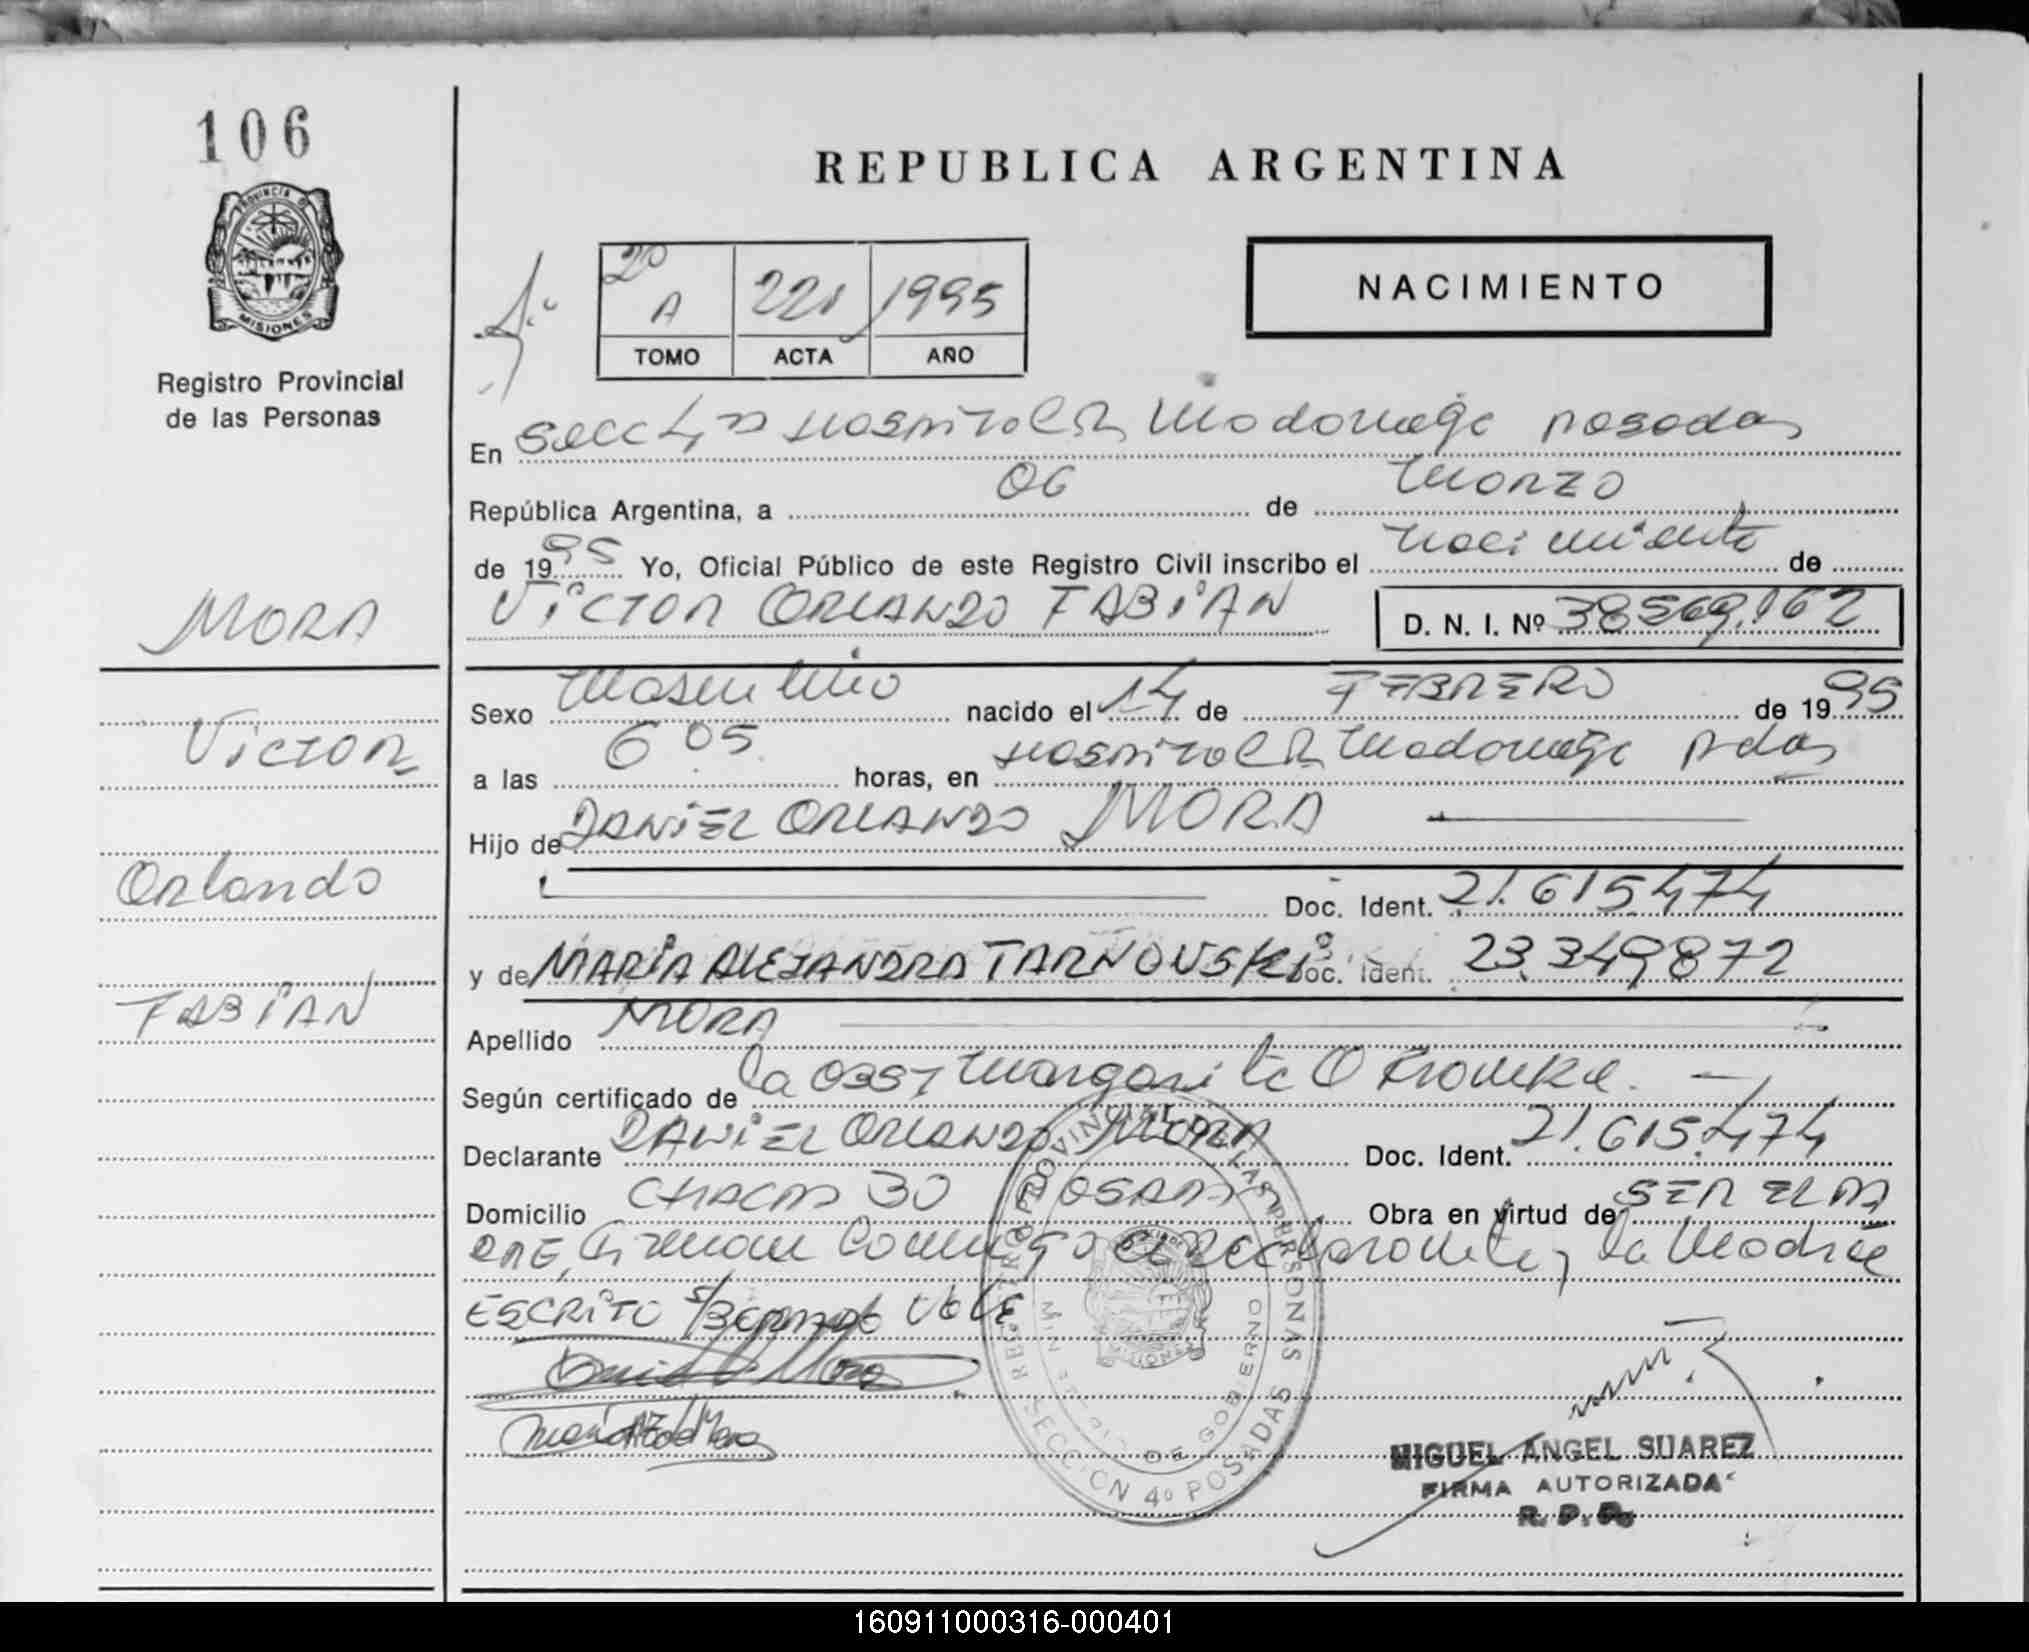 106
PROVINCIA DE
MISIONES
Registro Provincial
de las Personas
REPUBLICA ARGENTINA
2º
A 221 1995
TOMO ACTA AÑO
NACIMIENTO
En Secc 4ª Hospital R Madariaga posadas
República Argentina, a 06 de Marzo
de 1995 Yo, Oficial Público de este Registro Civil inscribo el nacimiento de
VICTOR ORLANDO FABIAN D. N. I. Nº 38569.162
MORA
Victor
Orlando
FABIAN
Sexo Masculino nacido el 14 de FEBRERO de 1995
a las 6 05 horas, en Hospital R Madariaga pdas
Hijo de DANIEL ORLANDO MORA
Doc. Ident. 21.615474
y de MARIA ALEJANDRA TARNOVSKI Doc. Ident. 23.349872
Apellido MORA
Según certificado de la obst Margarita O
Declarante DANIEL ORLANDO MORA Doc. Ident. 21.615.474
Domicilio CHACRA 30 POSADAS Obra en virtud de SER EL PA
DRE, Firman Conmigo el declarante y la Madre
ESCRITO S/ VALE
REGISTRO PROVINCIAL DE LAS PERSONAS
MINISTERIO DE GOBIERNO
SECCION 4º POSADAS
MISIONES
MIGUEL ANGEL SUAREZ
FIRMA AUTORIZADA
R. P. P.
160911000316-000401